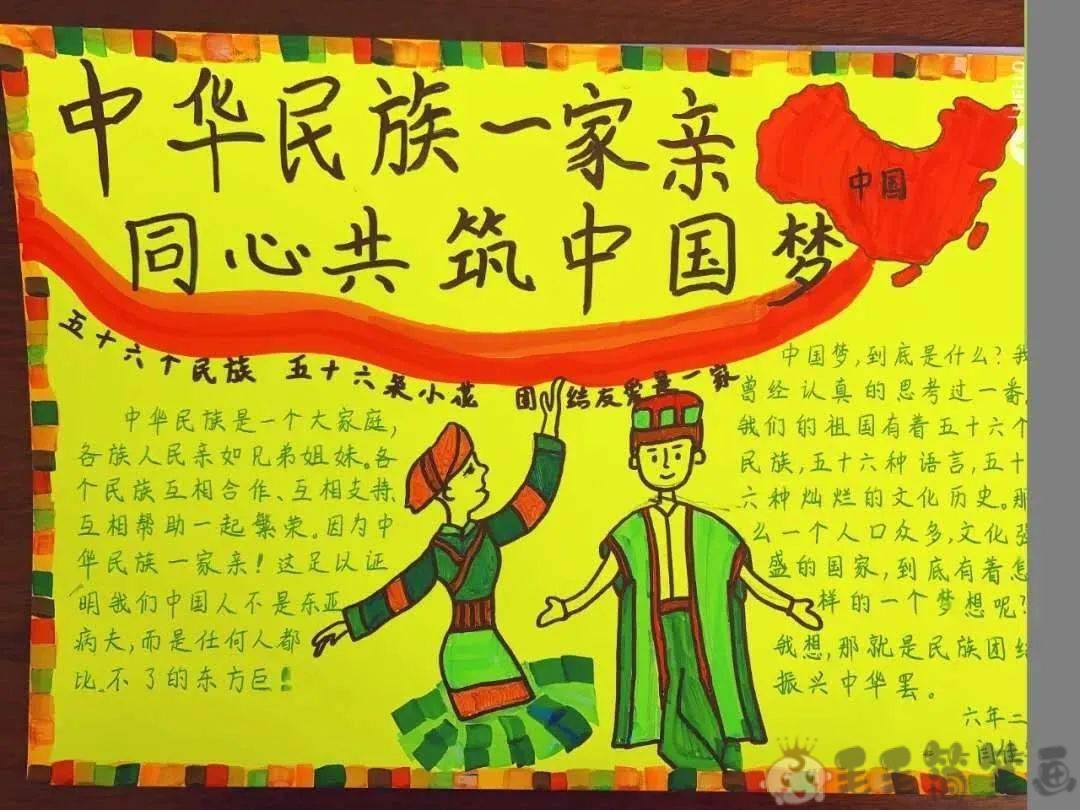 中华民族一家亲
同心共筑中国梦
中国
五十六个民族 五十六朵小花 团结友爱是一家
中华民族是一个大家庭,
各族人民亲如兄弟姐妹。各
个民族互相合作、互相支持、
互相帮助一起繁荣。因为中
华民族一家亲!这足以证
明我们中国人不是东亚
病夫,而是任何人都
比不了的东方巨!
中国梦,到底是什么?我
曾经认真的思考过一番。
我们的祖国有着五十六个
民族,五十六种语言,五十
六种灿烂的文化历史。那
么一个人口众多,文化强
盛的国家,到底有着怎
样的一个梦想呢?
我想,那就是民族团结
振兴中华罢。
六年二
闫佳
HELLO
毛毛简笔画